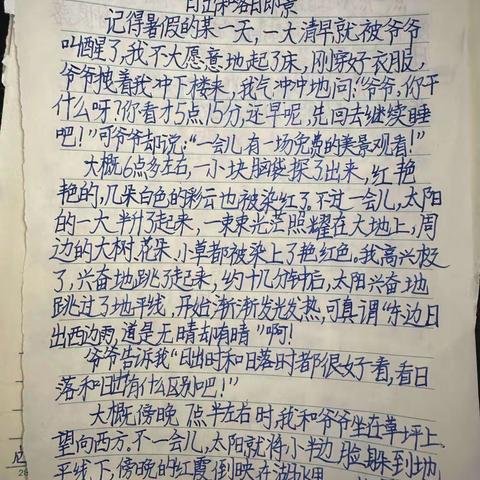 日出和落日即景
记得暑假的某一天,一大清早就被爷爷
叫醒了,我不大愿意地起了床,刚穿好衣服,
爷爷拽着我冲下楼来,我气冲冲地问:“爷爷,你干
什么呀?你看才5点15分,还早呢,先回去继续睡
吧!”可爷爷却说:“一会儿有一场免费的美景观看!”
大概6点多左右,一小块脑袋探了出来,红艳
艳的,几朵白色的彩云也被染红了。不过一会儿,太阳
的一大半升了起来,一束束光茫照耀在大地上,周
边的大树、花朵、小草都被染上了艳红色。我高兴极
了,兴奋地跳了起来,约十几分钟后,太阳兴奋地
跳过了地平线,开始渐渐发光发热,可真谓“东边日
出西边雨,道是无晴却有晴”啊!
爷爷告诉我“日出时和日落时都很好看,看日
落和日出有什么区别吧!”
大概傍晚7点半左右时,我和爷爷坐在草坪上
望向西方。不一会儿,太阳就将小半边脸躲到地
平线下,傍晚的红霞倒映在湖